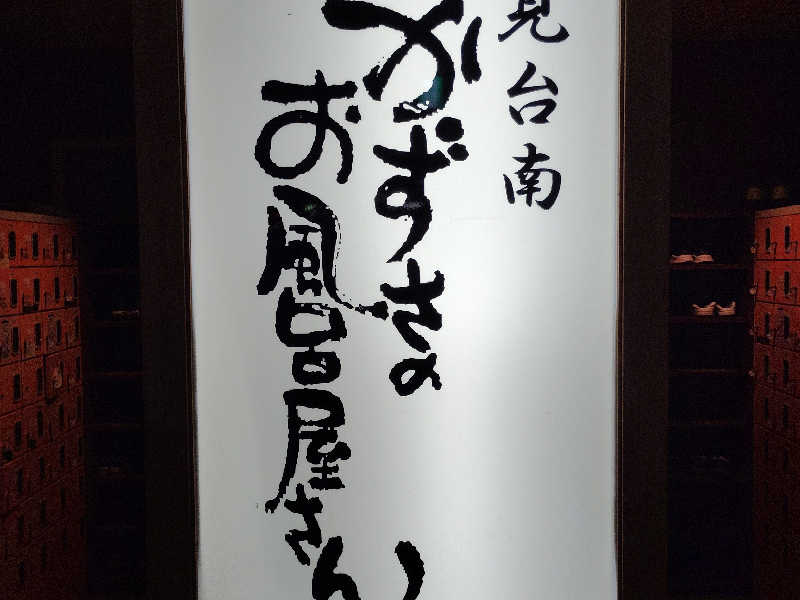 見台南
かずさの
お風呂屋さん